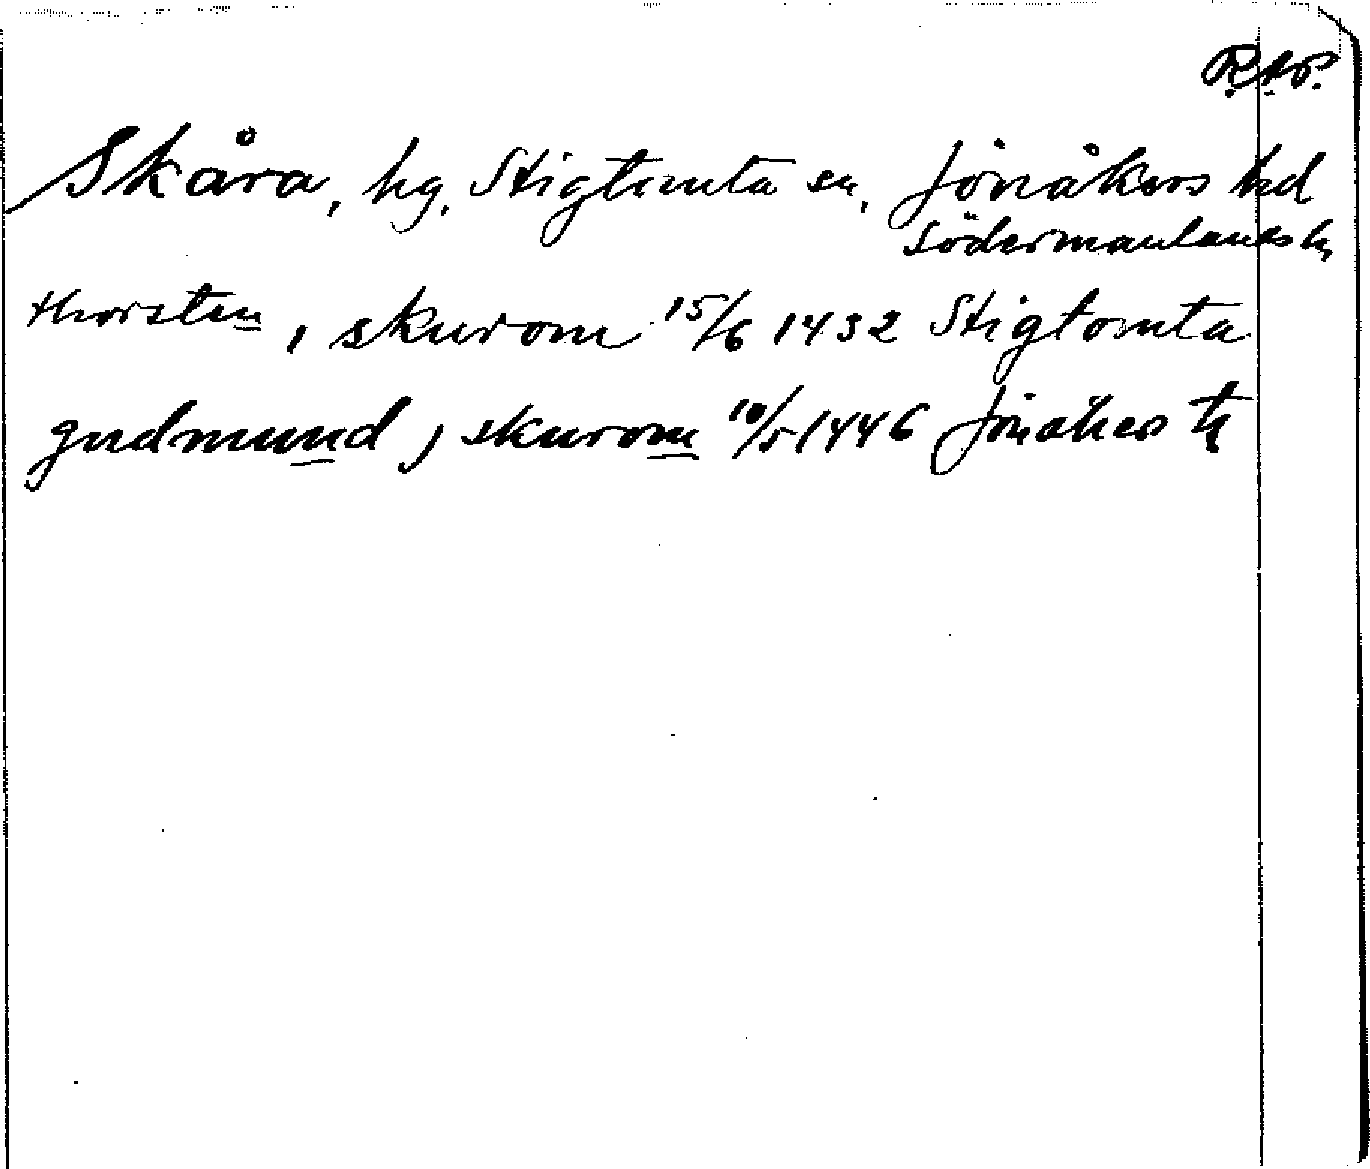 R.A.P.
Skåra, hg, Stigtomta sn, Jönåkers hd
Södermanlands l,
thorsten, skurom 15/6 1432 Stigtomta
gudmund, skurom 10/5 1446 Jönåkers